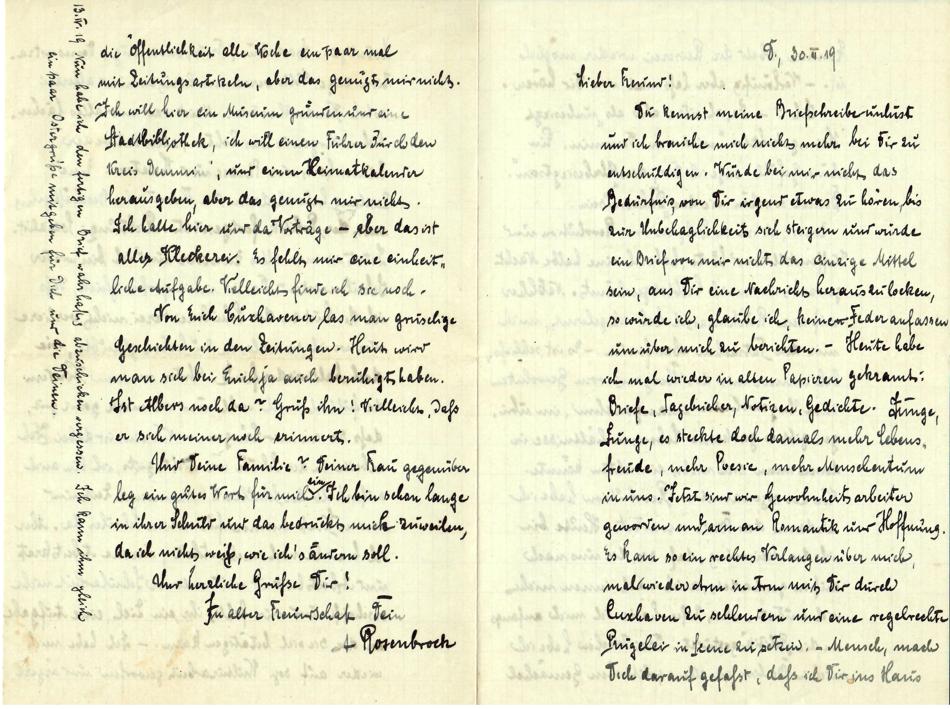 D., 30.III.19
Lieber Freund!
Du kennst meine Briefschreibeunlust
und ich brauche mich nicht mehr bei Dir zu
entschuldigen. Würde bei mir nicht das
Bedürfnis von Dir irgend etwas zu hören, bis
zur Unbehaglichkeit sich steigern und würde
ein Brief von mir nicht das einzige Mittel
sein, aus Dir eine Nachricht herauszulocken,
so würde ich, glaube ich, keine Feder anfassen
um über mich zu berichten. – Heute habe
ich mal wieder in alten Papieren gekramt:
Briefe, Tagebücher, Notizen, Gedichte. Junge,
Junge, es steckte doch damals mehr Lebens-
freude, mehr Poesie, mehr Menschentum
in uns. Jetzt sind wir Gewohnheitsarbeiter
geworden und arm an Romantik und Hoffnung.
Es kam so ein rechtes Verlangen über mich,
mal wieder Arm in Arm mit Dir durch
Cuxhaven zu schlendern und eine regelrechte
in Szene zu setzen. – Mensch, mach
Dich darauf gefaßt, dass ich Dir ins Haus
die Öffentlichkeit alle Woche ein paar mal
mit Zeitungsartikeln, aber das genügt mir nicht.
Ich will hier ein Museum gründen und eine
Stadtbibliothek, ich will einen Führer durch den
Kreis Demmin, und einen Heimatkalender
herausgeben, aber das genügt mir nicht.
Ich halte hier und da Vorträge – aber das ist
alles Kleckerei. Es fehlt mir eine einheit-
liche Aufgabe. Vielleicht finde ich sie noch.
Von Euch Cuxhavener las man gruselige
Geschichten in den Zeitungen. Heute wird
man sich bei Euch ja auch beruhigt haben.
Ist Albers noch da? Grüß ihn! Vielleicht, daß
er sich meiner noch erinnert.
Und Deine Familie? Deiner Frau gegenüber
leg ein gutes Wort für mich ein. Ich bin schon lange
in ihrer Schuld und das bedrückt mich zuweilen,
da ich nicht weiß, wie ich's ändern soll.
Nur herzliche Grüße Dir!
In alter Freundschaft Dein
A Rosenbrock
13.IV.19 Nun habe ich den fertigen Brief wahrhaftig abzuschicken vergessen. Ich kann ihm gleich
ein paar Ostergrüße mitgeben für Dich und die Deinen.